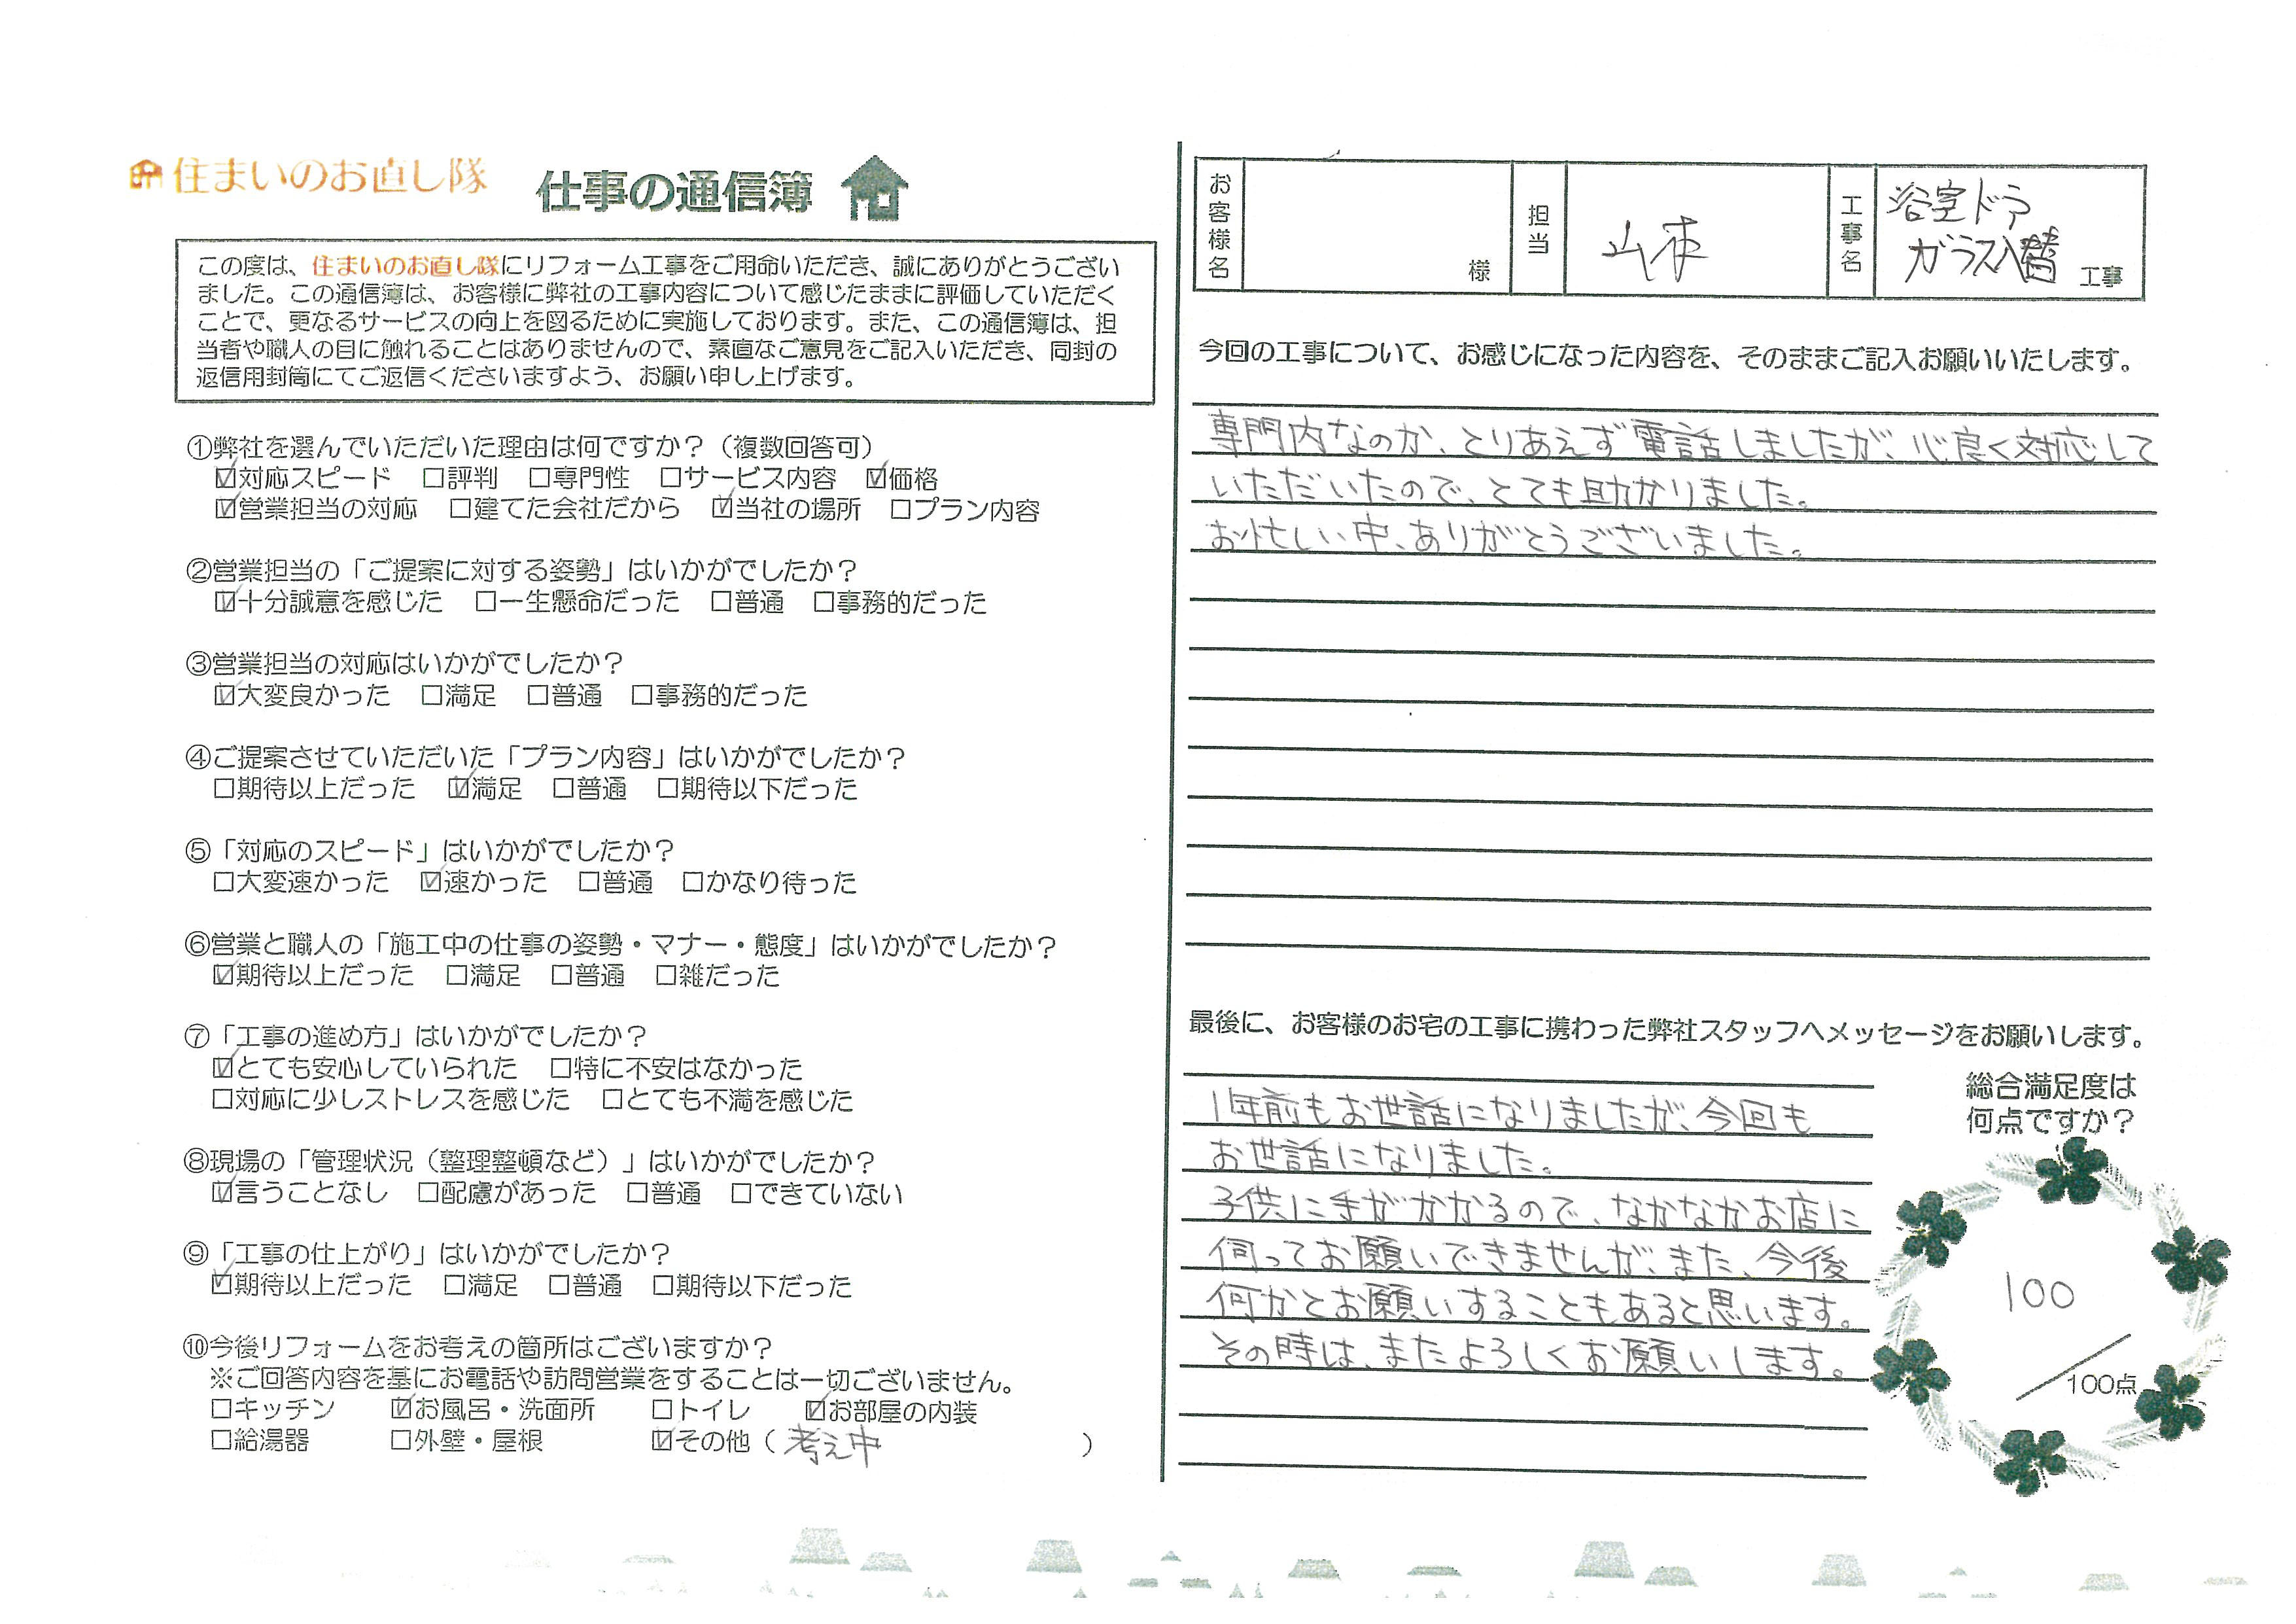 住まいのお直し隊
仕事の通信簿
この度は、住まいのお直し隊にリフォーム工事をご用命いただき、誠にありがとうござい
ました。この通信簿は、お客様に弊社の工事内容について感じたままに評価していただく
ことで、更なるサービスの向上を図るために実施しております。また、この通信簿は、担
当者や職人の目に触れることはありませんので、素直なご意見をご記入いただき、同封の
返信用封筒にてご返信くださいますよう、お願い申し上げます。
①弊社を選んでいただいた理由は何ですか？（複数回答可）
☑対応スピード ☐評判 ☐専門性 ☐サービス内容 ☑価格
☑営業担当の対応 ☐建てた会社だから ☑当社の場所 ☐プラン内容
②営業担当の「ご提案に対する姿勢」はいかがでしたか？
☑十分誠意を感じた ☐一生懸命だった ☐普通 ☐事務的だった
③営業担当の対応はいかがでしたか？
☑大変良かった ☐満足 ☐普通 ☐事務的だった
④ご提案させていただいた「プラン内容」はいかがでしたか？
☐期待以上だった ☑満足 ☐普通 ☐期待以下だった
⑤「対応のスピード」はいかがでしたか？
☐大変速かった ☑速かった ☐普通 ☐かなり待った
⑥営業と職人の「施工中の仕事の姿勢・マナー・態度」はいかがでしたか？
☑期待以上だった ☐満足 ☐普通 ☐雑だった
⑦「工事の進め方」はいかがでしたか？
☑とても安心していられた ☐特に不安はなかった
☐対応に少しストレスを感じた ☐とても不満を感じた
⑧現場の「管理状況（整理整頓など）」はいかがでしたか？
☑言うことなし ☐配慮があった ☐普通 ☐できていない
⑨「工事の仕上がり」はいかがでしたか？
☑期待以上だった ☐満足 ☐普通 ☐期待以下だった
⑩今後リフォームをお考えの箇所はございますか？
※ご回答内容を基にお電話や訪問営業をすることは一切ございません。
☐キッチン ☑お風呂・洗面所 ☐トイレ ☑お部屋の内装
☐給湯器 ☐外壁・屋根 ☑その他（考え中）
お客様名 様 担当 山本 工事名 浴室ドア
ガラス入替 工事
今回の工事について、お感じになった内容を、そのままご記入お願いいたします。
専門内なのか、とりあえず電話しましたが、心良く対応して
いただいたので、とても助かりました。
お忙しい中、ありがとうございました。
最後に、お客様のお宅の工事に携わった弊社スタッフへメッセージをお願いします。
1年前もお世話になりましたが、今回も
お世話になりました。
子供に手がかかるので、なかなかお店に
伺ってお願いできませんが、また、今後
何かとお願いすることもあると思います。
その時は、またよろしくお願いします。
総合満足度は
何点ですか？
100
／100点